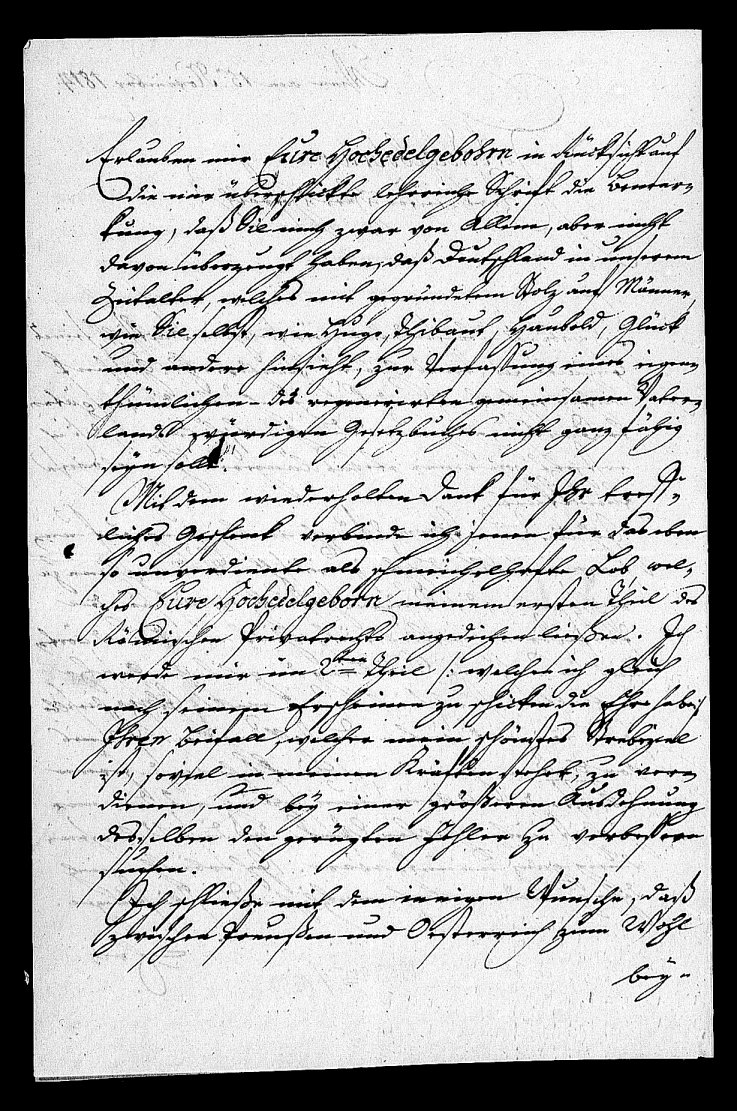 Erlauben mir Eure Hochedelgebohrn in Rücksicht auf
die mir überschickte lehrreiche Schrift die Bemer-
kung, daß Sie mich zwar von Allem, aber nicht
davon überzeugt haben, daß Deutschland in unserem
Zeitalter, welches mit gegründetem Stolz auf Männer,
wie Sie selbst, wie Hugo, Thibaut, Haubold, Glück
und andere hinsieht, zur Verfassung eines eigen-
thümlichen des regenerirten gemeinsamen Vater-
lands würdigen Gesetzbuches nicht ganz fähig
seyn soll.
Mit dem wiederholten Dank für Ihr treff-
liches Geschenk verbinde ich jenen für das eben
so unverdiente als schmeichelhafte Lob, wel-
ches Eure Hochedelgeborn meinem ersten Theil des
Römischen Privatrechts angedeihen ließen. Ich
werde mir im 2ten Theil /: welchen ich gleich
nach seinem Erscheinen zu schicken die Ehre habe :/
Ihren Beifall, welcher mein schönstes Strebeziel
ist, soviel in meinen Kräften stehet, zu ver-
dienen, und bey einer größeren Ausdehnung
desselben den gerügten Fehler zu verbessern
suchen.
Ich schließe mit dem innigen Wunsche, daß
zwischen Preußen und Oesterreich zum Wohl
bey-